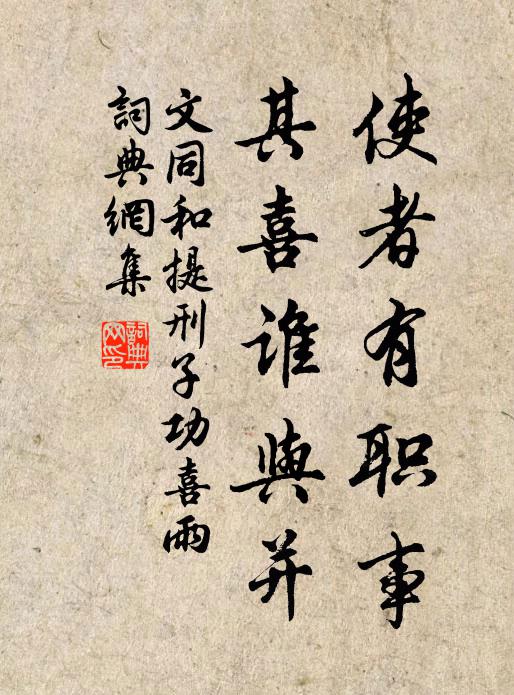 使者有职事
其喜谁與并
文同和提刑子功喜雨
詞典網集
詞典网印